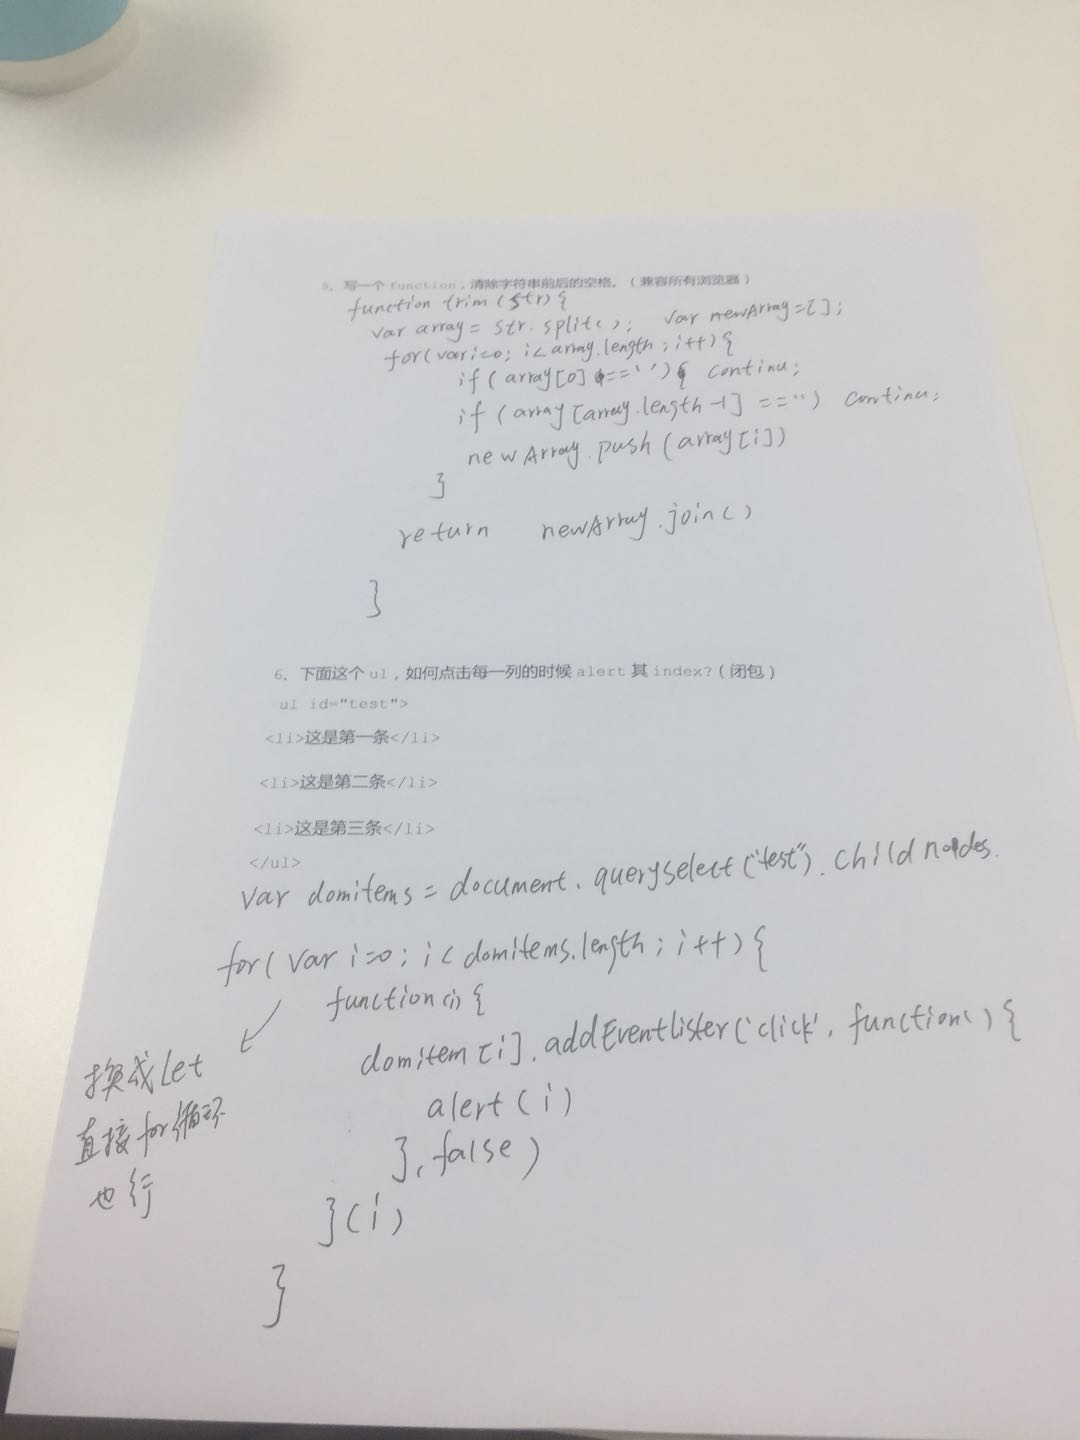 5、写一个function，清除字符串前后的空格。（兼容所有浏览器）
function trim(str){
var array= str.split(); var newArray=[];
for(var i=0; i<array.length; i++){
if(array[0]==='') continu;
if(array[array.length-1] =='') continu;
newArray.push(array[i])
}
return newArray.join()
}
6、下面这个ul，如何点击每一列的时候alert其index?（闭包）
ul id="test">
<li>这是第一条</li>
<li>这是第二条</li>
<li>这是第三条</li>
</ul>
var domitems = document.queryselect("test").childnodes.
for(var i=0; i<domitems.length; i++){
function(i){
domitem[i].addEventlister('click', function(){
alert(i)
},false)
}(i)
}
换成let
直接for循环
也行